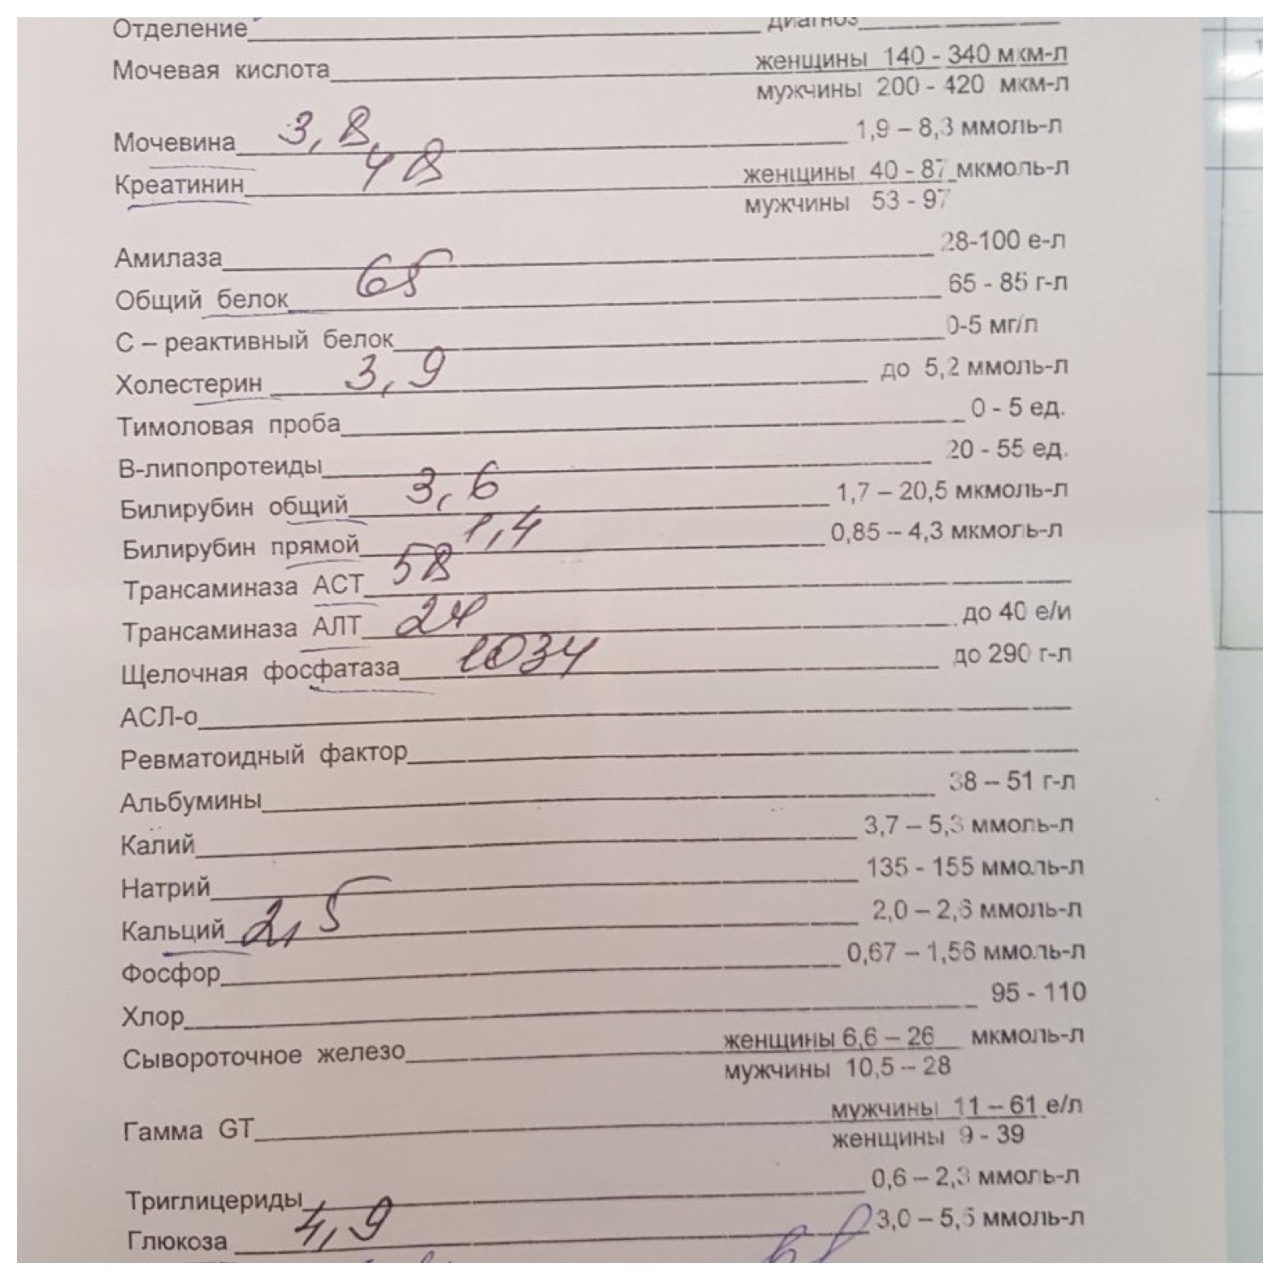 Отделение диагноз
Мочевая кислота женщины 140 - 340 мкм-л
мужчины 200 - 420 мкм-л
Мочевина 3,8 1,9 – 8,3 ммоль-л
Креатинин 48 женщины 40 - 87 мкмоль-л
мужчины 53 - 97
Амилаза 28-100 е-л
Общий белок 65 65 - 85 г-л
С – реактивный белок 0-5 мг/л
Холестерин 3,9 до 5,2 ммоль-л
Тимоловая проба 0 - 5 ед.
В-липопротеиды 20 - 55 ед.
Билирубин общий 3,6 1,7 – 20,5 мкмоль-л
Билирубин прямой 1,4 0,85 – 4,3 мкмоль-л
Трансаминаза АСТ 58
Трансаминаза АЛТ 24 до 40 е/и
Щелочная фосфатаза 1034 до 290 г-л
АСЛ-о
Ревматоидный фактор
Альбумины 38 – 51 г-л
Калий 3,7 – 5,3 ммоль-л
Натрий 135 - 155 ммоль-л
Кальций 2,5 2,0 – 2,6 ммоль-л
Фосфор 0,67 – 1,56 ммоль-л
Хлор 95 - 110
Сывороточное железо женщины 6,6 – 26 мкмоль-л
мужчины 10,5 – 28
Гамма GT мужчины 11 – 61 е/л
женщины 9 - 39
Триглицериды 0,6 – 2,3 ммоль-л
Глюкоза 4,9 3,0 – 5,5 ммоль-л